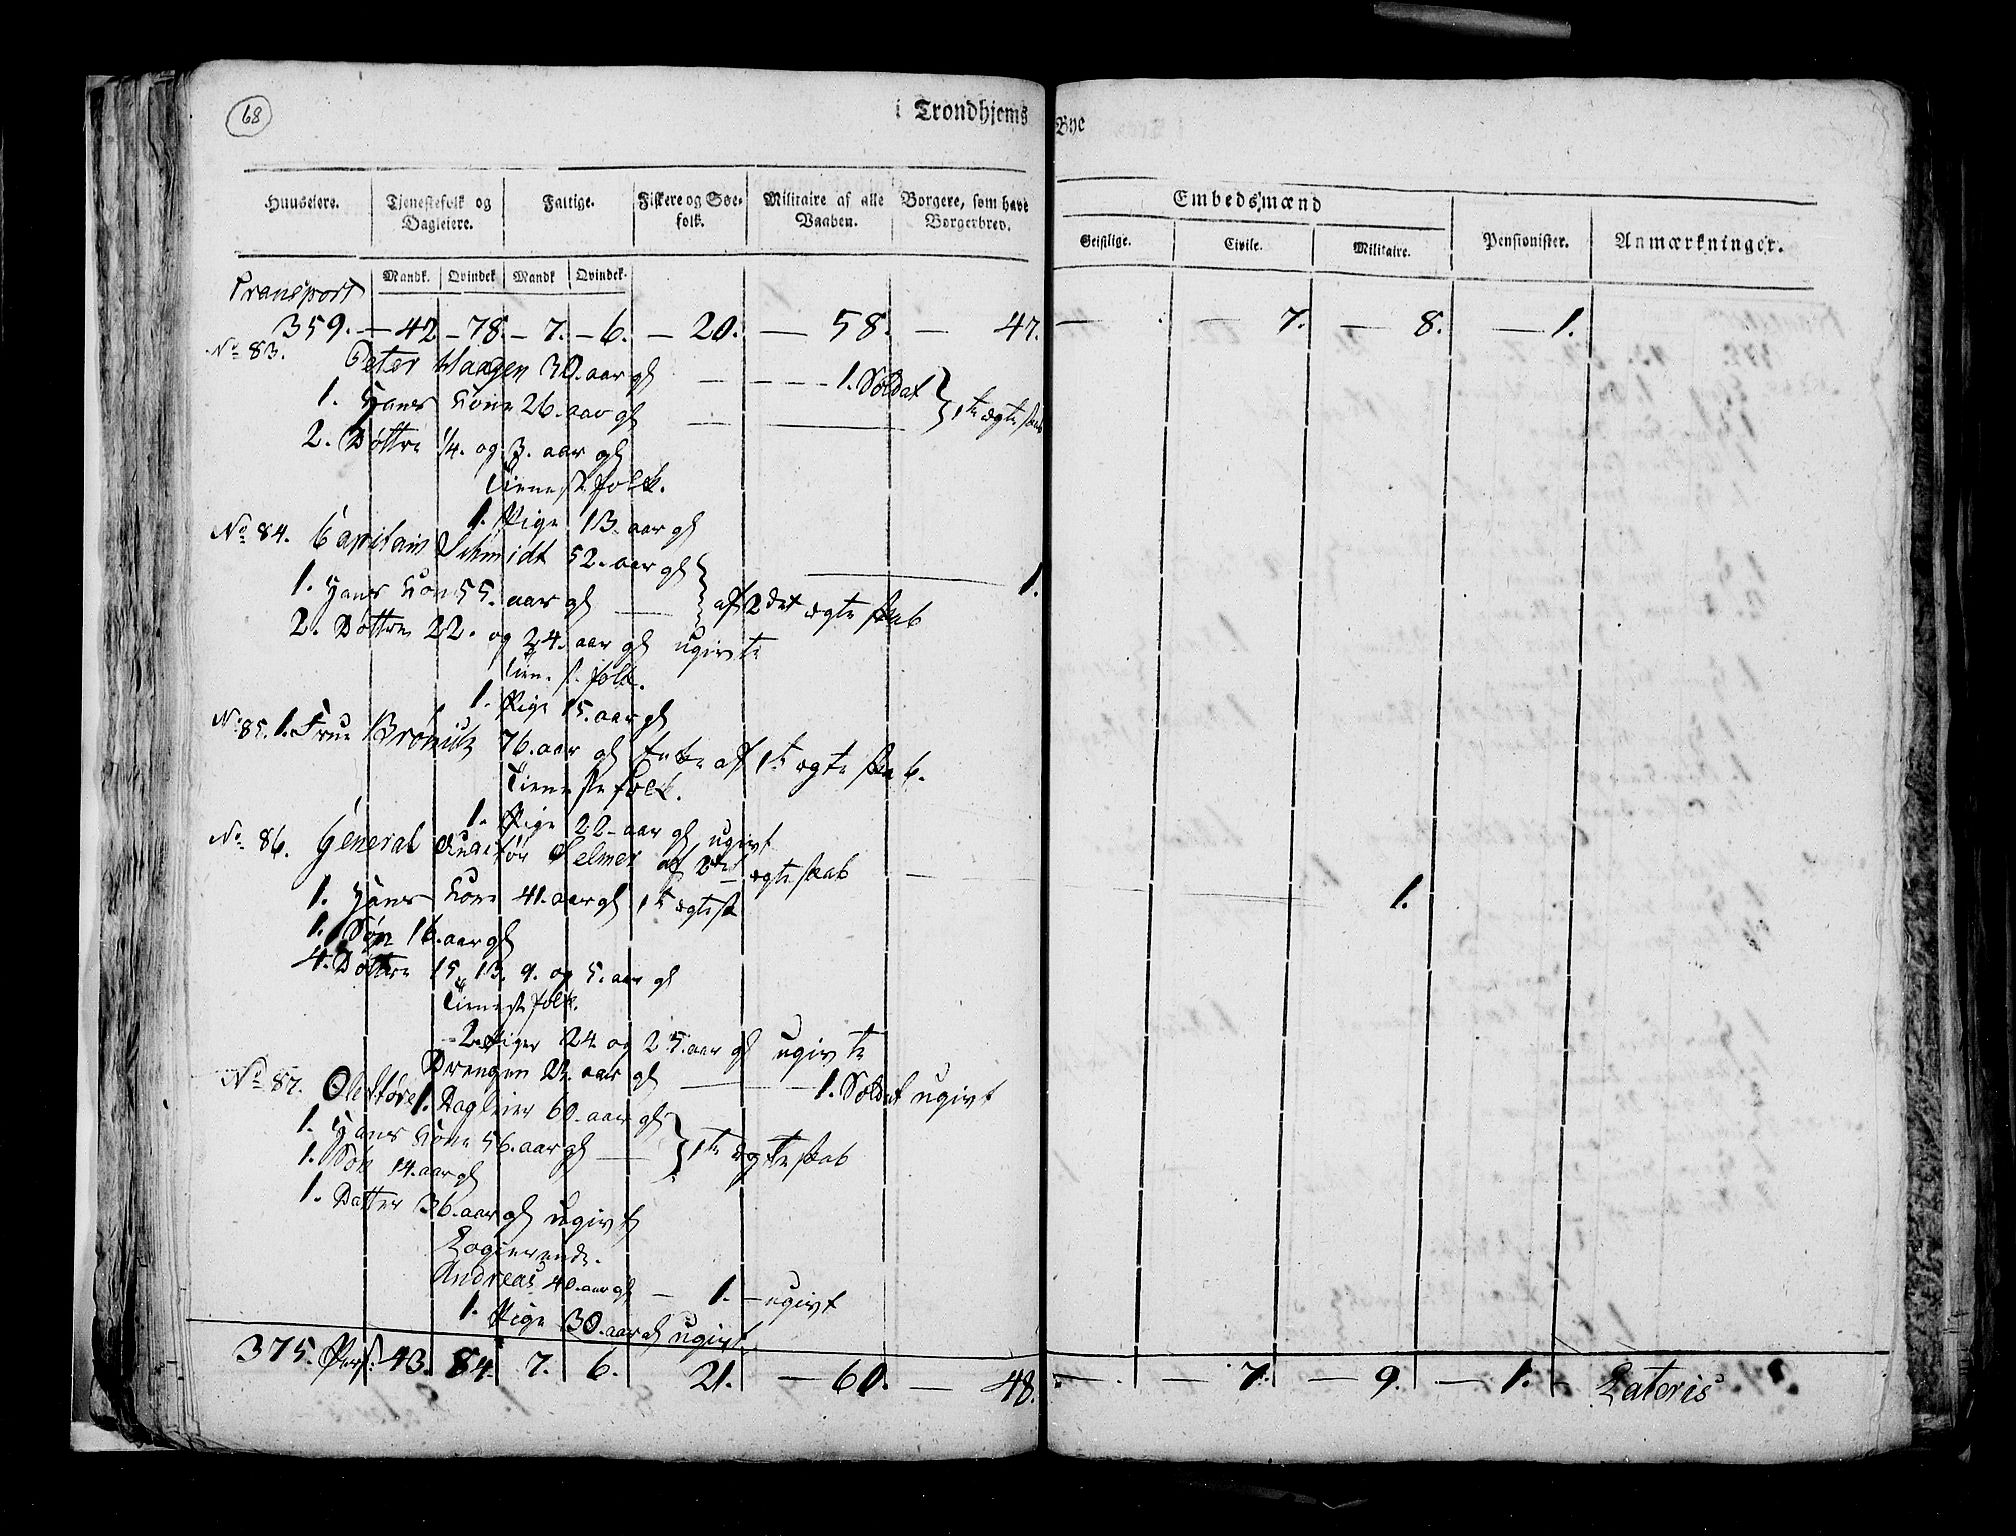 68
i Trondhjems Bye
Huuseiere. Tjenestefolk og Dagleiere. Fattige. Fiskere og Søefolk. Militaire af alle Vaaben. Borgere, som have Borgerbrev. Embedsmænd Pensionister. Anmærkninger.
Geistlige. Civile. Militaire.
Mandk. Qvindek. Mandk. Qvindek.
Transport
359. — 42 — 78. — 7. — 6. — 20. — 58. — 47. — . — 7. — 8. — 1.
No 83. Peter Haagen 30. aar gl — — — 1. Soldat
1. Hans Kone 26. aar gl — — 1te ægteskab
2. Døttre 1/4. og 3. aar gl
Tienestfolk.
1. Pige 13. aar gl
No 84. Capitain Schmidt 52. aar gl — 1.
1. Hans Kone 55. aar gl — af 2det ægteskab
2. Døttre 22. og 24. aar gl ugivte
Tienstfolk.
1. Pige 15. aar gl
No 85. 1. Frue 76. aar gl Enke af 1te ægteskab.
Tienestefolk.
1. Pige 22. aar gl ugivt
No 86. General Auditør Selmer af 2det ægteskab — 1.
1. Hans Kone 41. aar gl 1te ægtesk
1. Søn 16. aar gl
4. Døttre 15. 13. 9. og 5. aar gl
Tienestfolk.
2. Piger 24. og 25. aar gl ugivte
Drengen 22. aar gl — 1. Soldat ugivt
No 87. Ole Støre 1. Dagleier 60. aar gl
1. Hans Kone 56. aar gl — 1te ægteskab
1. Søn 14. aar gl
1. Datter 36. aar gl ugivt
Logierende.
Andreas 40. aar gl — 1. — ugivt
1. Pige 30. aar gl ugivt
375. Pers: 43. 84. 7. 6. 21. — 60. — 48. — . — 7. — 9. — 1. Lateris